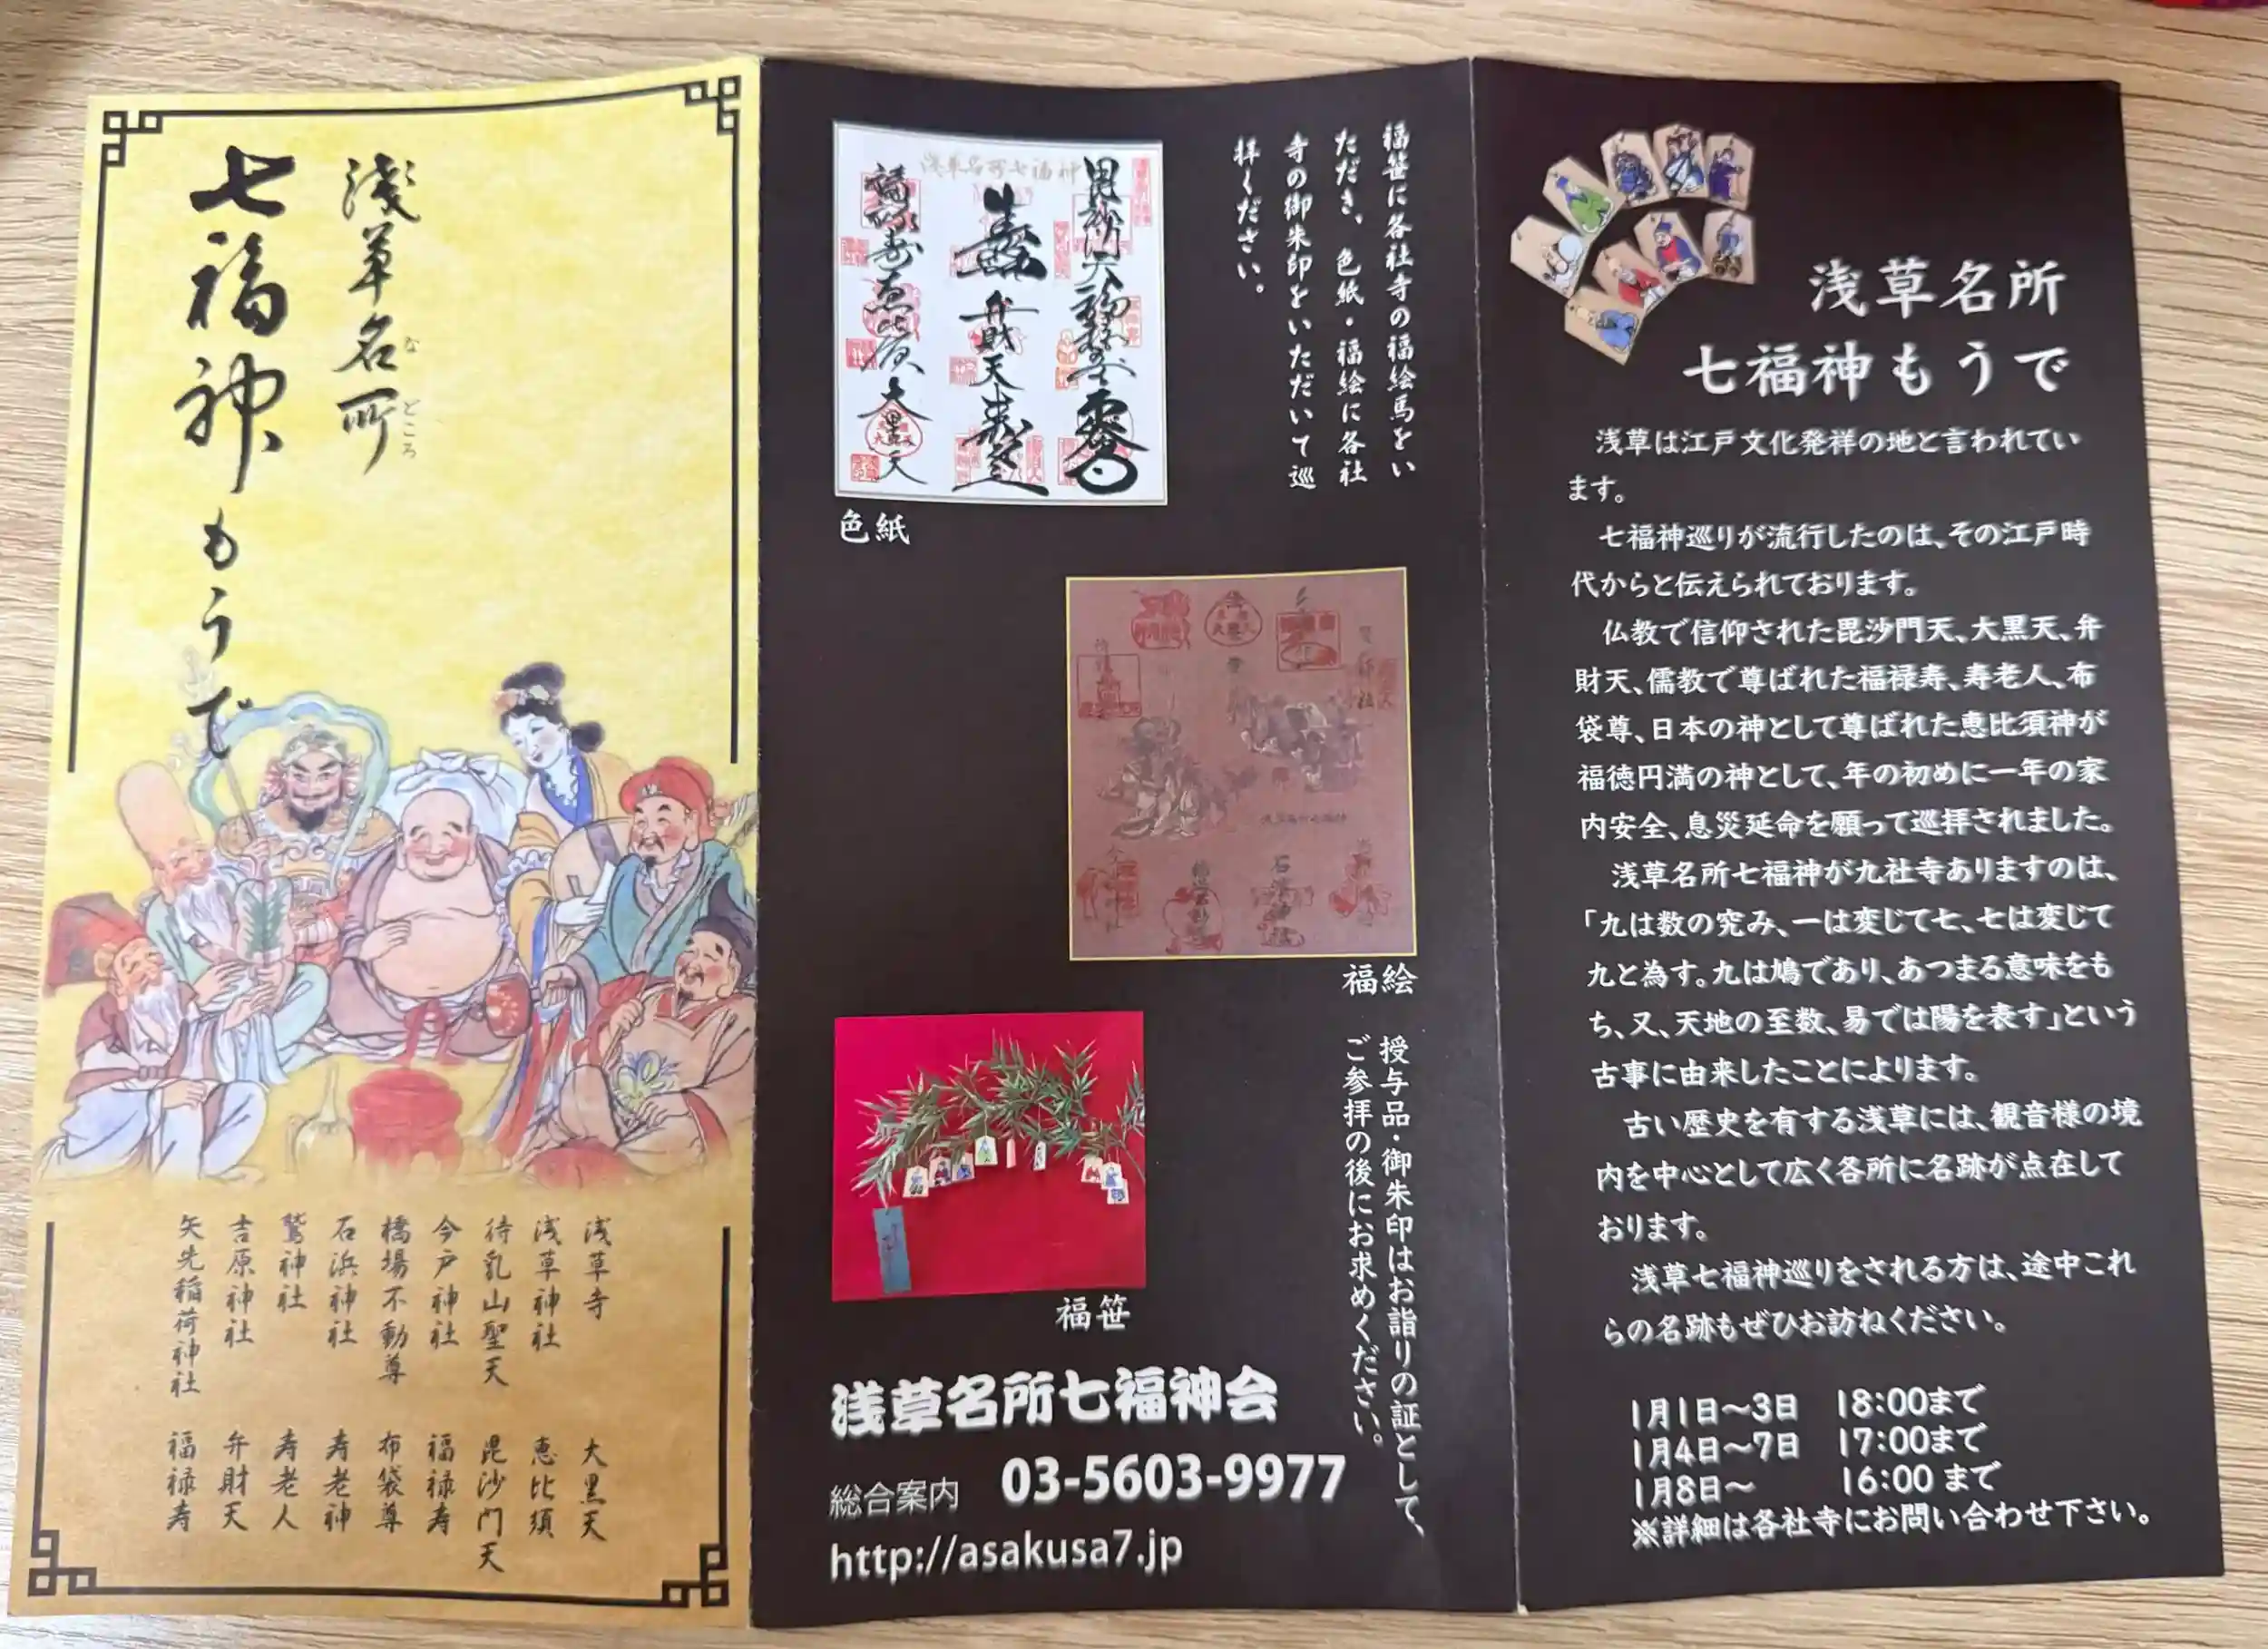 浅草名所
なところ
七福神もうで
浅草寺 大黒天
浅草神社 恵比須
待乳山聖天 毘沙門天
今戸神社 福禄寿
橋場不動尊 布袋尊
石浜神社 寿老神
鷲神社 寿老人
吉原神社 弁財天
矢先稲荷神社 福禄寿
福笹に各社寺の福絵馬をい
ただき、色紙・福絵に各社
寺の御朱印をいただいて巡
拝ください。
浅草名所七福神
毘沙門天
弁財天
福禄寿
恵比須
大黒天
色紙
福絵
福笹
授与品・御朱印はお詣りの証として、
ご参拝の後にお求めください。
浅草名所七福神会
総合案内 03-5603-9977
http://asakusa7.jp
浅草名所
七福神もうで
浅草は江戸文化発祥の地と言われてい
ます。
七福神巡りが流行したのは、その江戸時
代からと伝えられております。
仏教で信仰された毘沙門天、大黒天、弁
財天、儒教で尊ばれた福禄寿、寿老人、布
袋尊、日本の神として尊ばれた恵比須神が
福徳円満の神として、年の初めに一年の家
内安全、息災延命を願って巡拝されました。
浅草名所七福神が九社寺ありますのは、
「九は数の究み、一は変じて七、七は変じて
九と為す。九は鳩であり、あつまる意味をも
ち、又、天地の至数、易では陽を表す」という
古事に由来したことによります。
古い歴史を有する浅草には、観音様の境
内を中心として広く各所に名跡が点在して
おります。
浅草七福神巡りをされる方は、途中これ
らの名跡もぜひお訪ねください。
1月1日～3日 18:00まで
1月4日～7日 17:00まで
1月8日～ 16:00まで
※詳細は各社寺にお問い合わせ下さい。